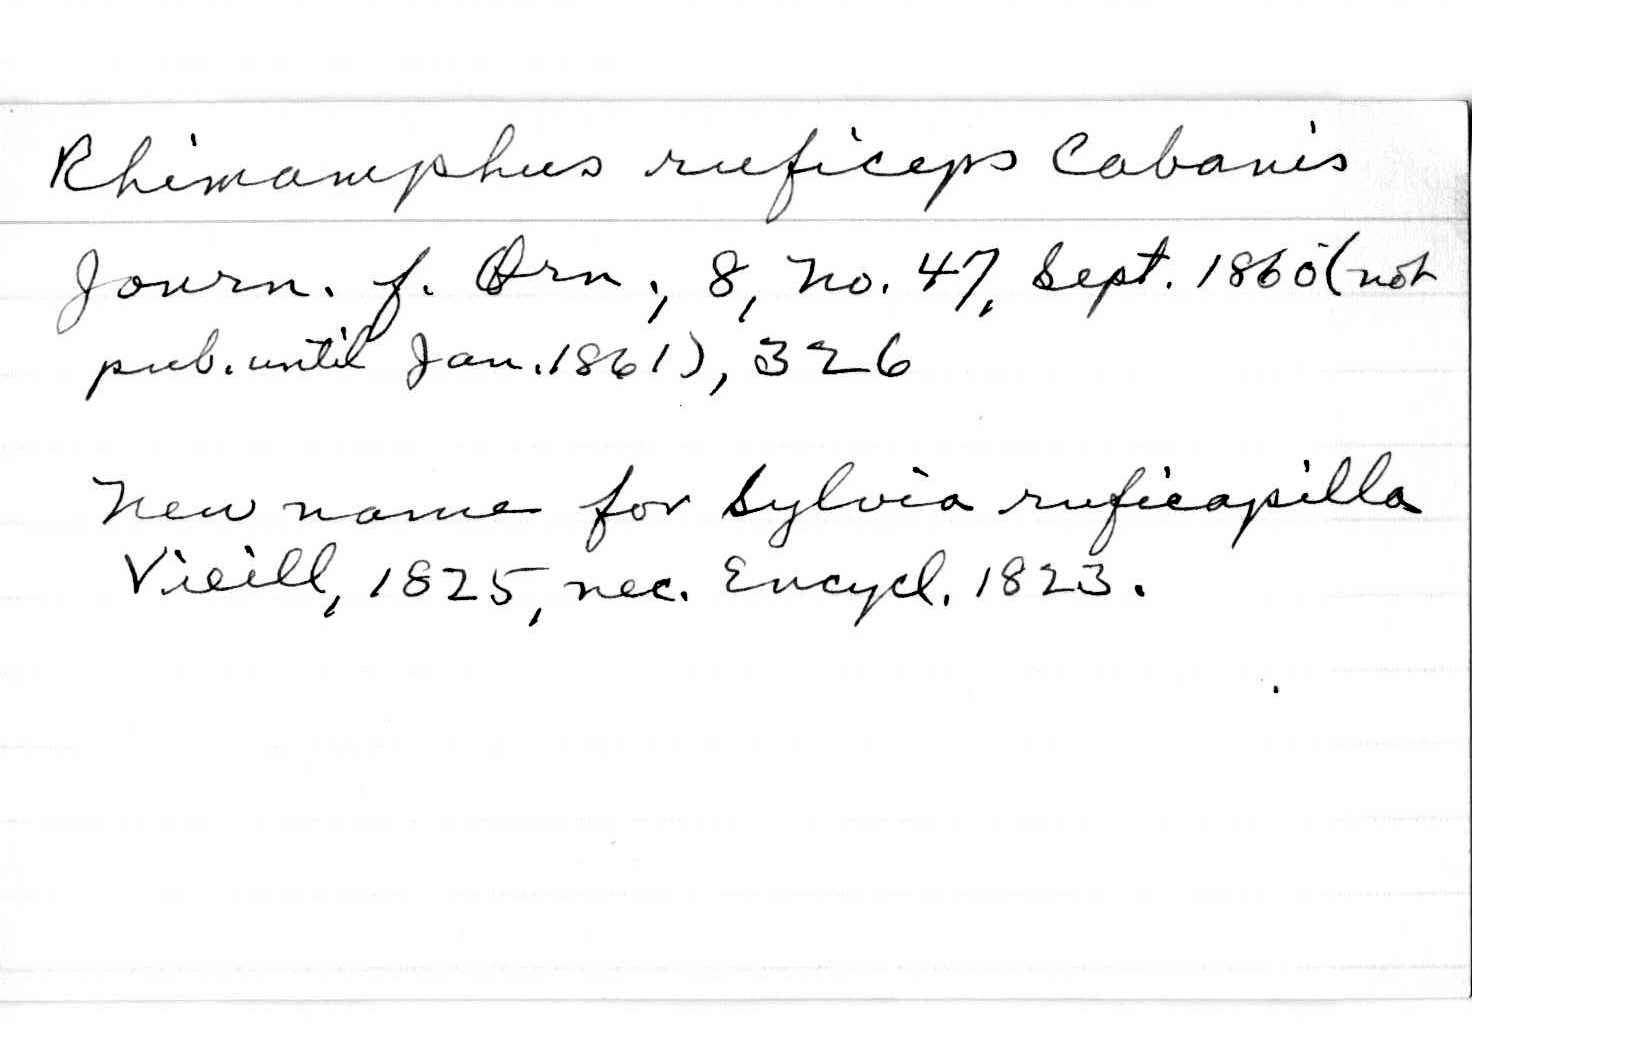 Rhimamphus ruficeps Cabanis
Journ. f. Orn., 8, no. 47, Sept. 1860 (not
pub. until Jan. 1861), 326
New name for Sylvia ruficapilla
Vieill, 1825, nec. Encycl. 1823.